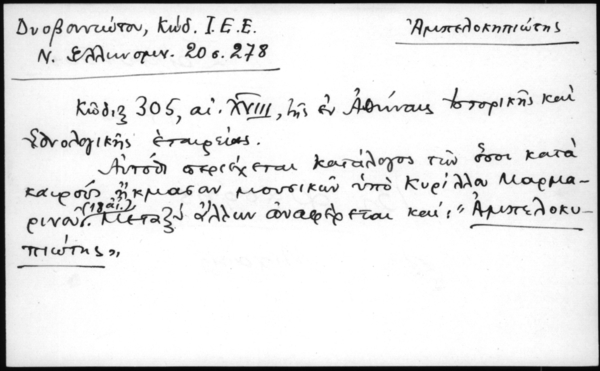 Δυοβουνιώτου, Κώδ. Ι.Ε.Ε.
Ν. Ἑλληνομν. 20 σ. 278
Ἀμπελοκηπιώτης
Κῶδιξ 305, αἰ. XVIII, τῆς ἐν Ἀθήναις Ἱστορικῆς καὶ
Ἐθνολογικῆς ἑταιρείας.
Αὐτόθι περιέχεται κατάλογος τῶν ὅσοι κατὰ
καιροὺς ἤκμασαν μουσικῶν ὑπὸ Κυρίλλου Μαρμα-
ρινοῦ (18 αἰ.). Μεταξὺ ἄλλων ἀναφέρεται καί: "Ἀμπελοκυ-
πιώτης"